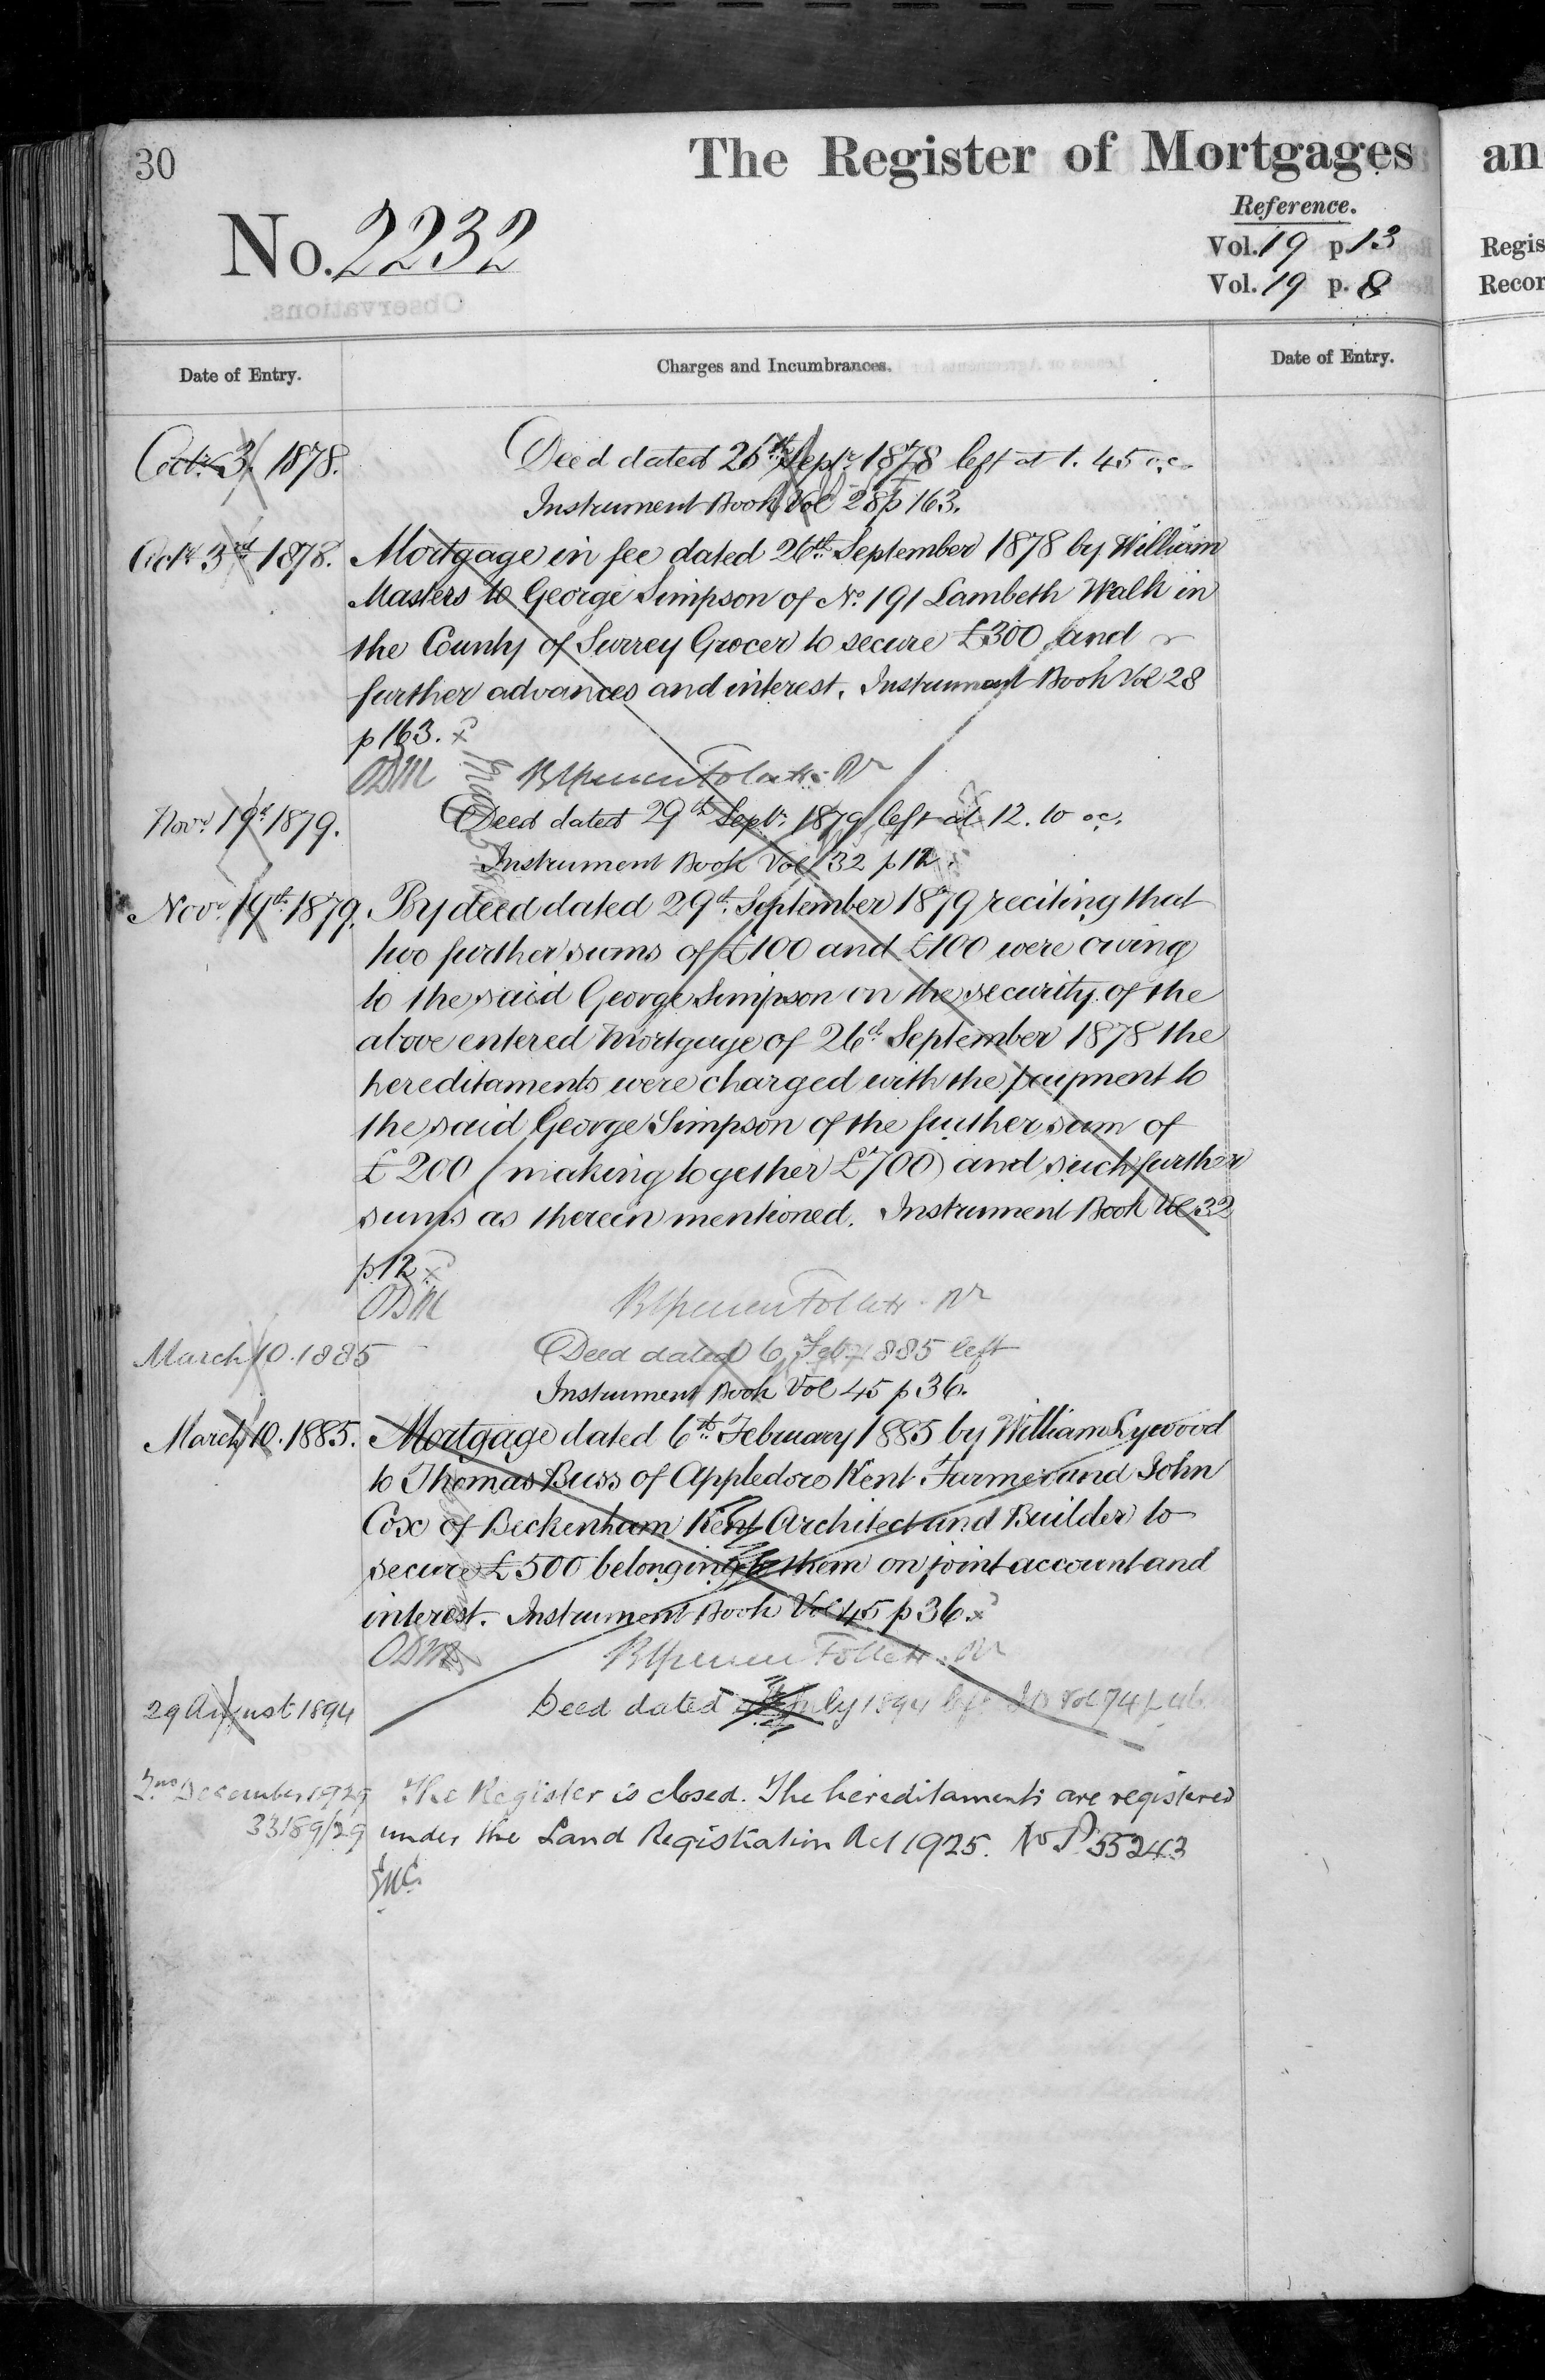 30
The Register of Mortgages
an
Reference.
No. 2232
Vol. 19 p. 13
Vol. 19 p. 8
Regis
Recor
Observations.
Date of Entry.
Charges and Incumbrances.
Date of Entry.
Octr. 3. 1878.
Deed dated 26th Septr. 1878 left at 1. 45 oc.
Instrument Book Vol 28 p 163.
Octr 3rd 1878.
Mortgage in fee dated 26th September 1878 by William
Masters to George Simpson of No. 191 Lambeth Walk in
the County of Surrey Grocer to secure £300 and
further advances and interest. Instrument Book Vol 28
p 163.
ODM
Novr. 19th 1879.
Deed dated 29th Septr. 1879 left at 12. 10 oc.
Instrument Book Vol 32 p 12.
Novr. 19th 1879.
By deed dated 29th September 1879 reciting that
two further sums of £100 and £100 were owing
to the said George Simpson on the security of the
above entered Mortgage of 26th September 1878 the
hereditaments were charged with the payment to
the said George Simpson of the further sum of
£200 (making together £700) and such further
sums as therein mentioned. Instrument Book Vol 32
p 12.
ODM
March 10. 1885
Deed dated 6 Feb. 1885 left
Instrument Book Vol 45 p 36.
March 10. 1885.
Mortgage dated 6th February 1885 by William Lywood
to Thomas Buss of Appledore Kent Farmer and John
Cox of Beckenham Kent Architect and Builder to
secure £500 belonging to them on joint account and
interest. Instrument Book Vol 45 p 36.
ODM
29 August 1894
Deed dated July 1894 left I B Vol 74 p
2nd December 1929
The Register is closed. The hereditaments are registered
33189/29
under the Land Registration Act 1925. No P. 55243